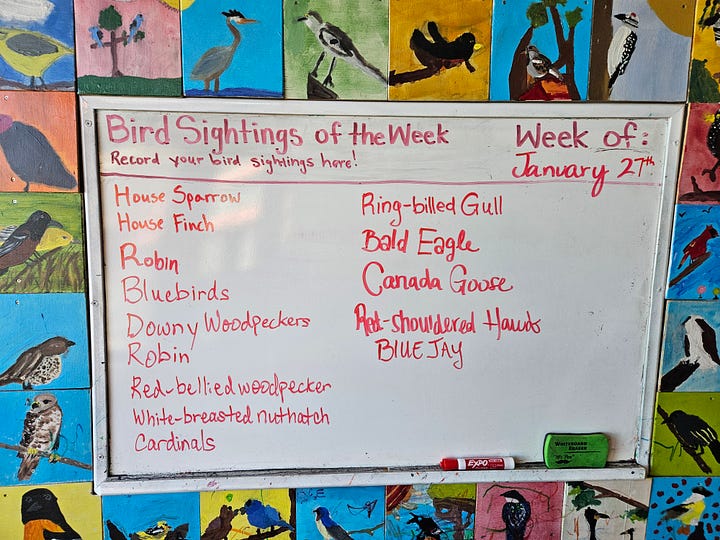 Bird Sightings of the Week
Record your bird sightings here!
Week of:
January 27th
House Sparrow
House Finch
Robin
Bluebirds
Downy Woodpeckers
Robin
Red-bellied woodpecker
White-breasted nuthatch
Cardinals
Ring-billed Gull
Bald Eagle
Canada Goose
Red-shouldered Hawk
BLUE JAY
EXPO
WHITEBOARD
ERASER